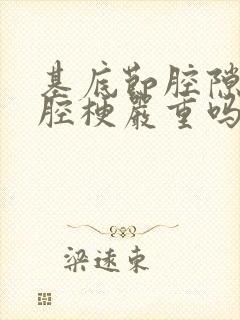 基底节腔隙
腔梗严重吗
梁远东